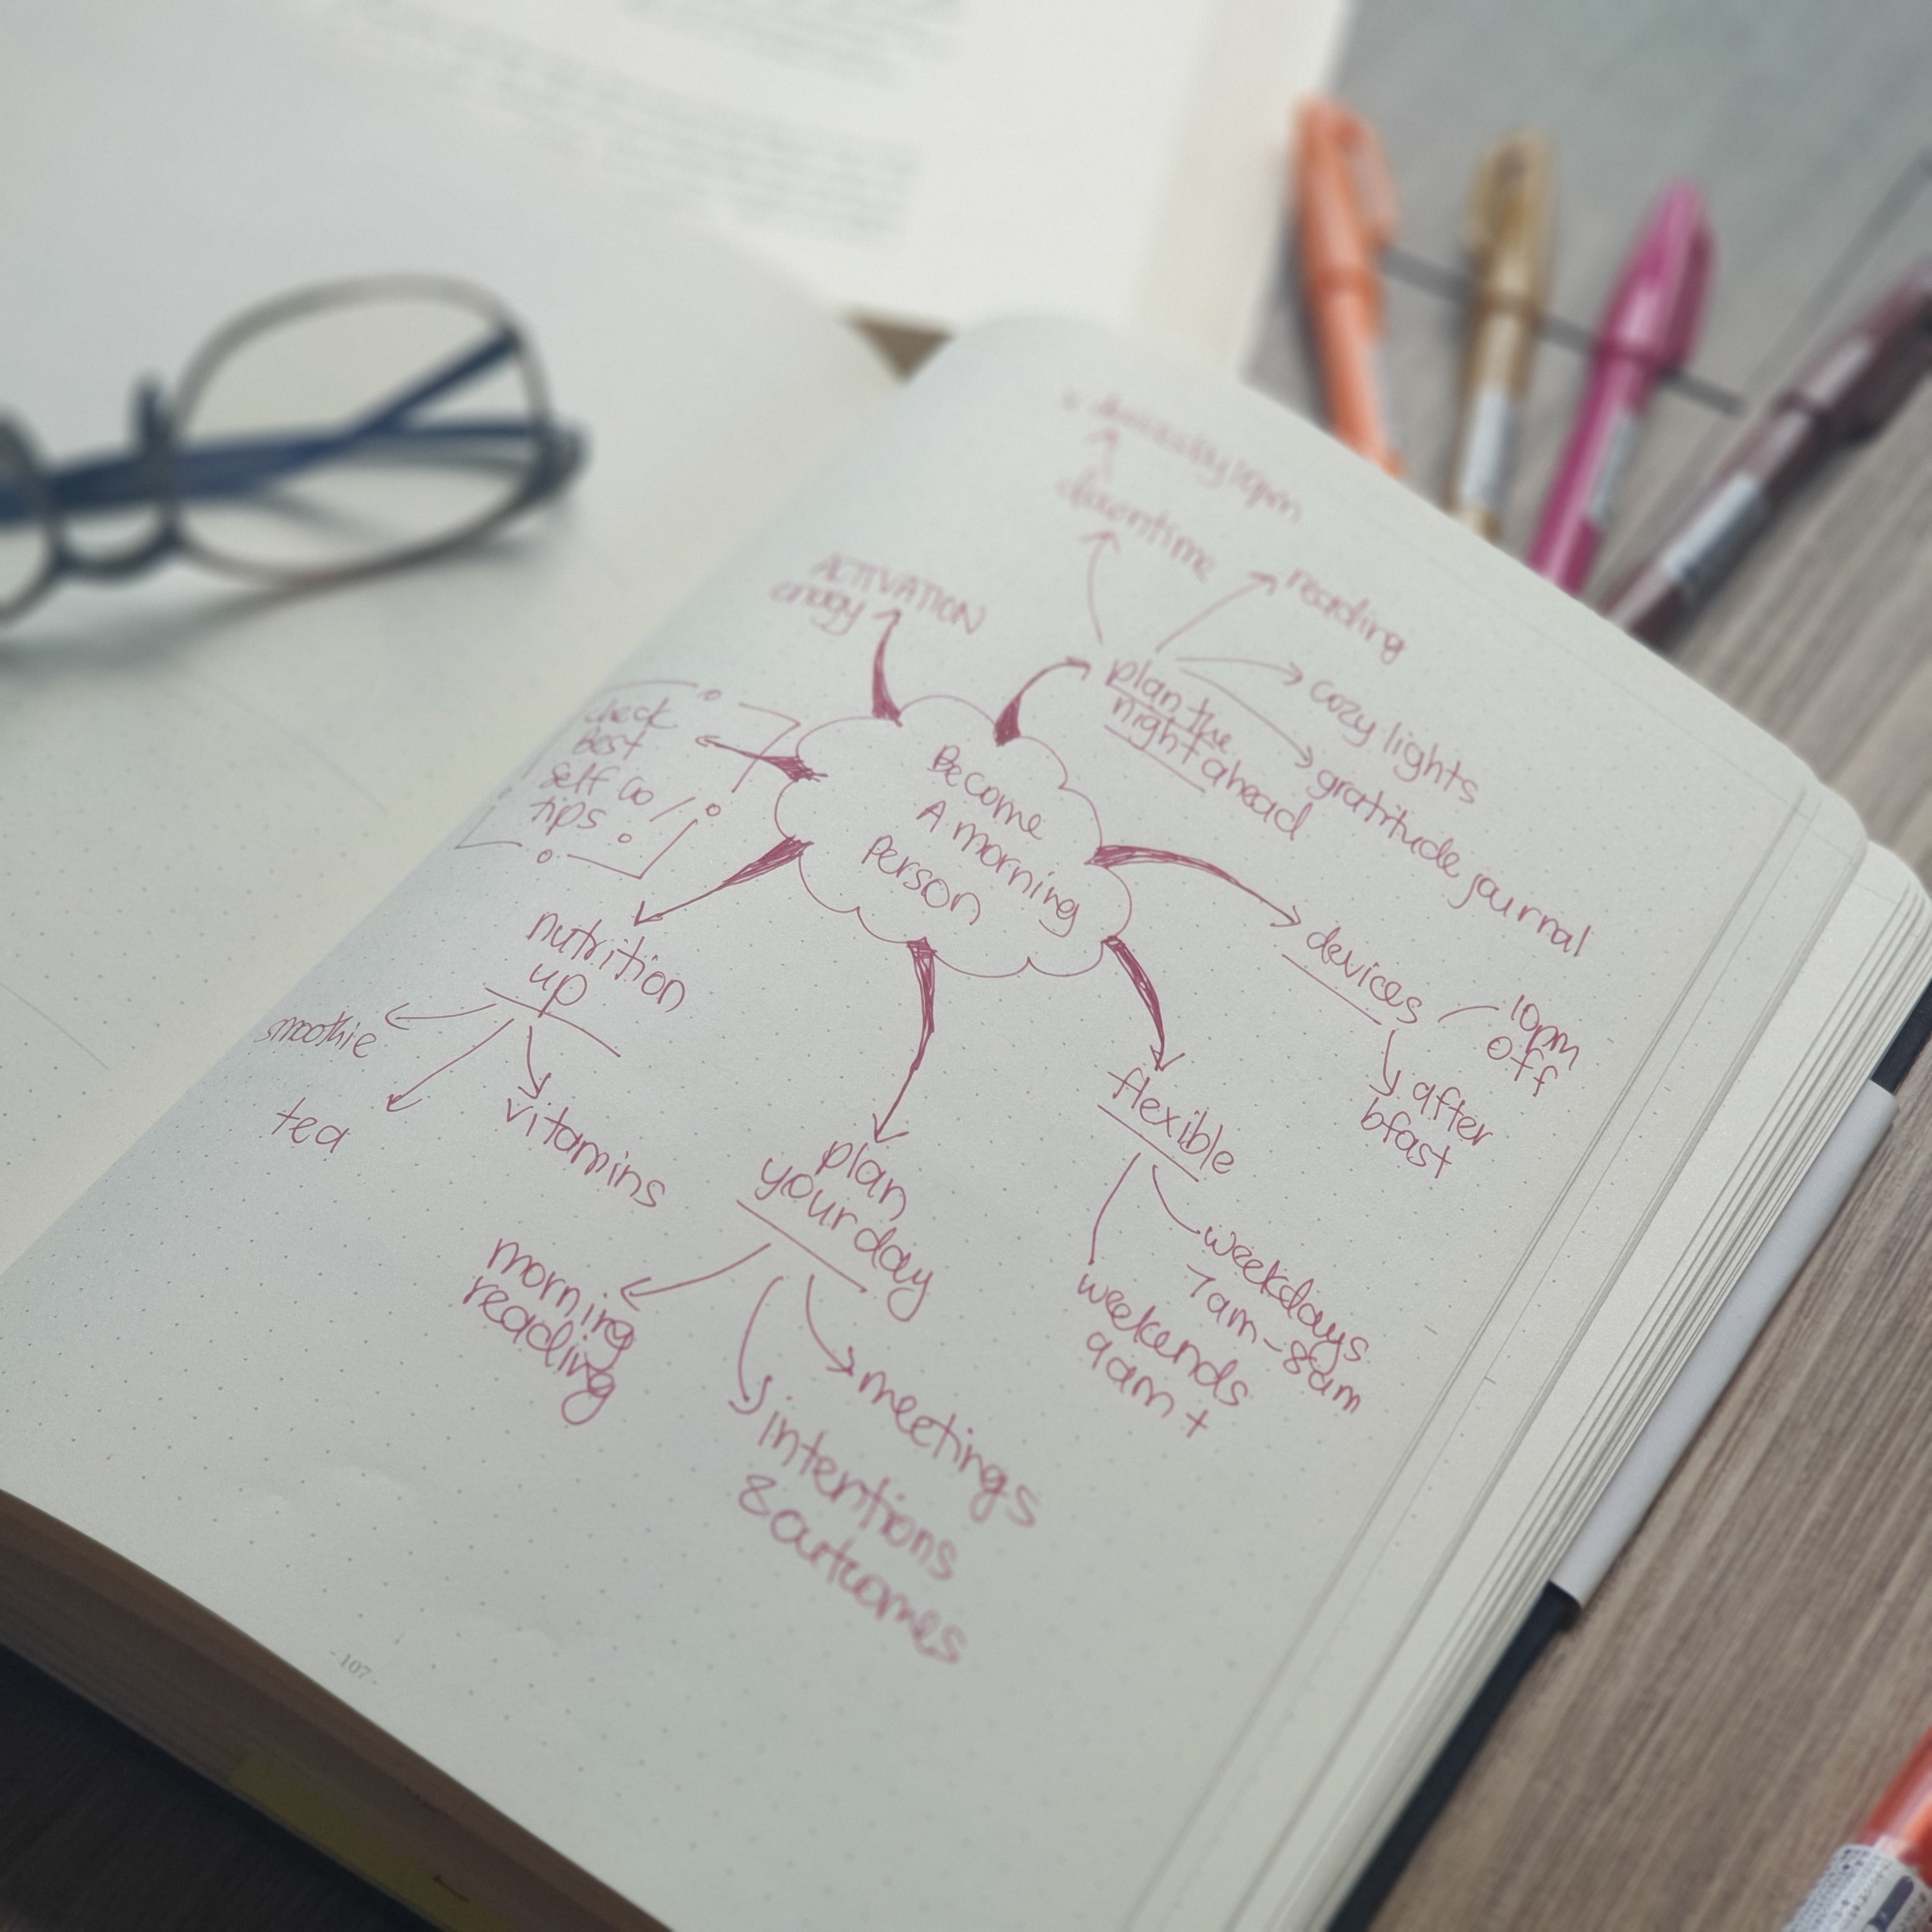 downtime
reading
ACTIVATION
plan the
night ahead
cozy lights
gratitude journal
check
Best
Self Co
tips
Become
A morning
Person
devices
10pm
off
after
bfast
nutrition
up
smoothie
tea
vitamins
flexible
weekdays
7am-8am
weekends
9am +
plan
your day
morning
reading
meetings
intentions
& outcomes
-107-